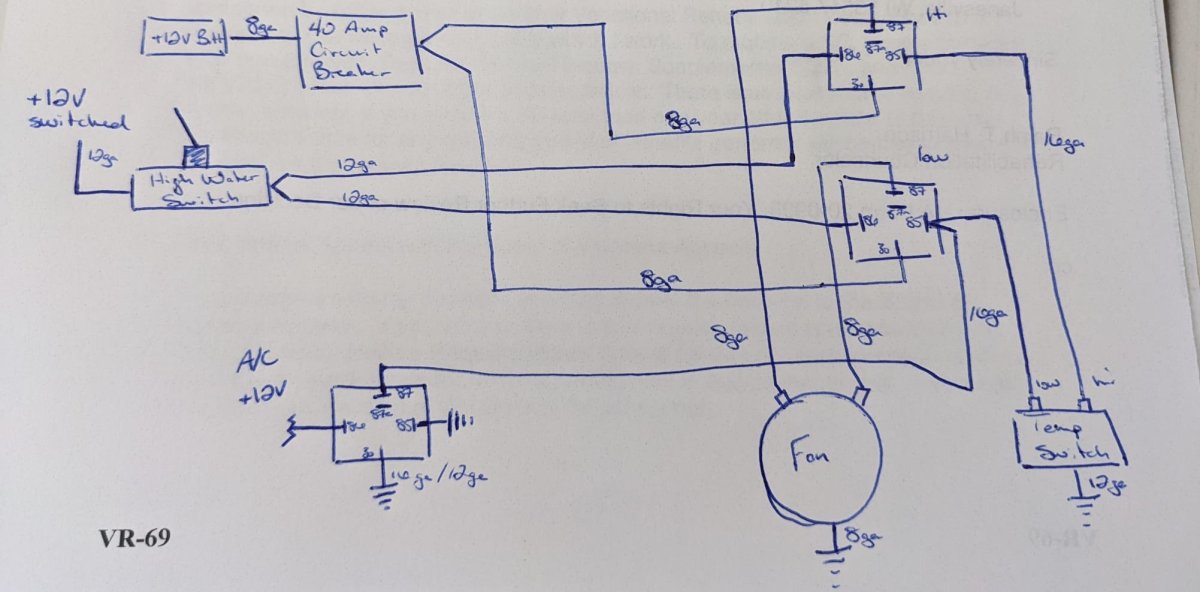 +12V Batt
8ga
40 Amp
Circuit
Breaker
+12V
switched
12ga
High Water
Switch
12ga
12ga
8ga
8ga
Hi
87
87a
86
85
30
16ga
low
87
87a
86
85
30
16ga
8ga
8ga
A/C
+12V
87
87a
86
85
30
16ga/12ga
Fan
8ga
low
hi
Temp
Switch
12ga
VR-69